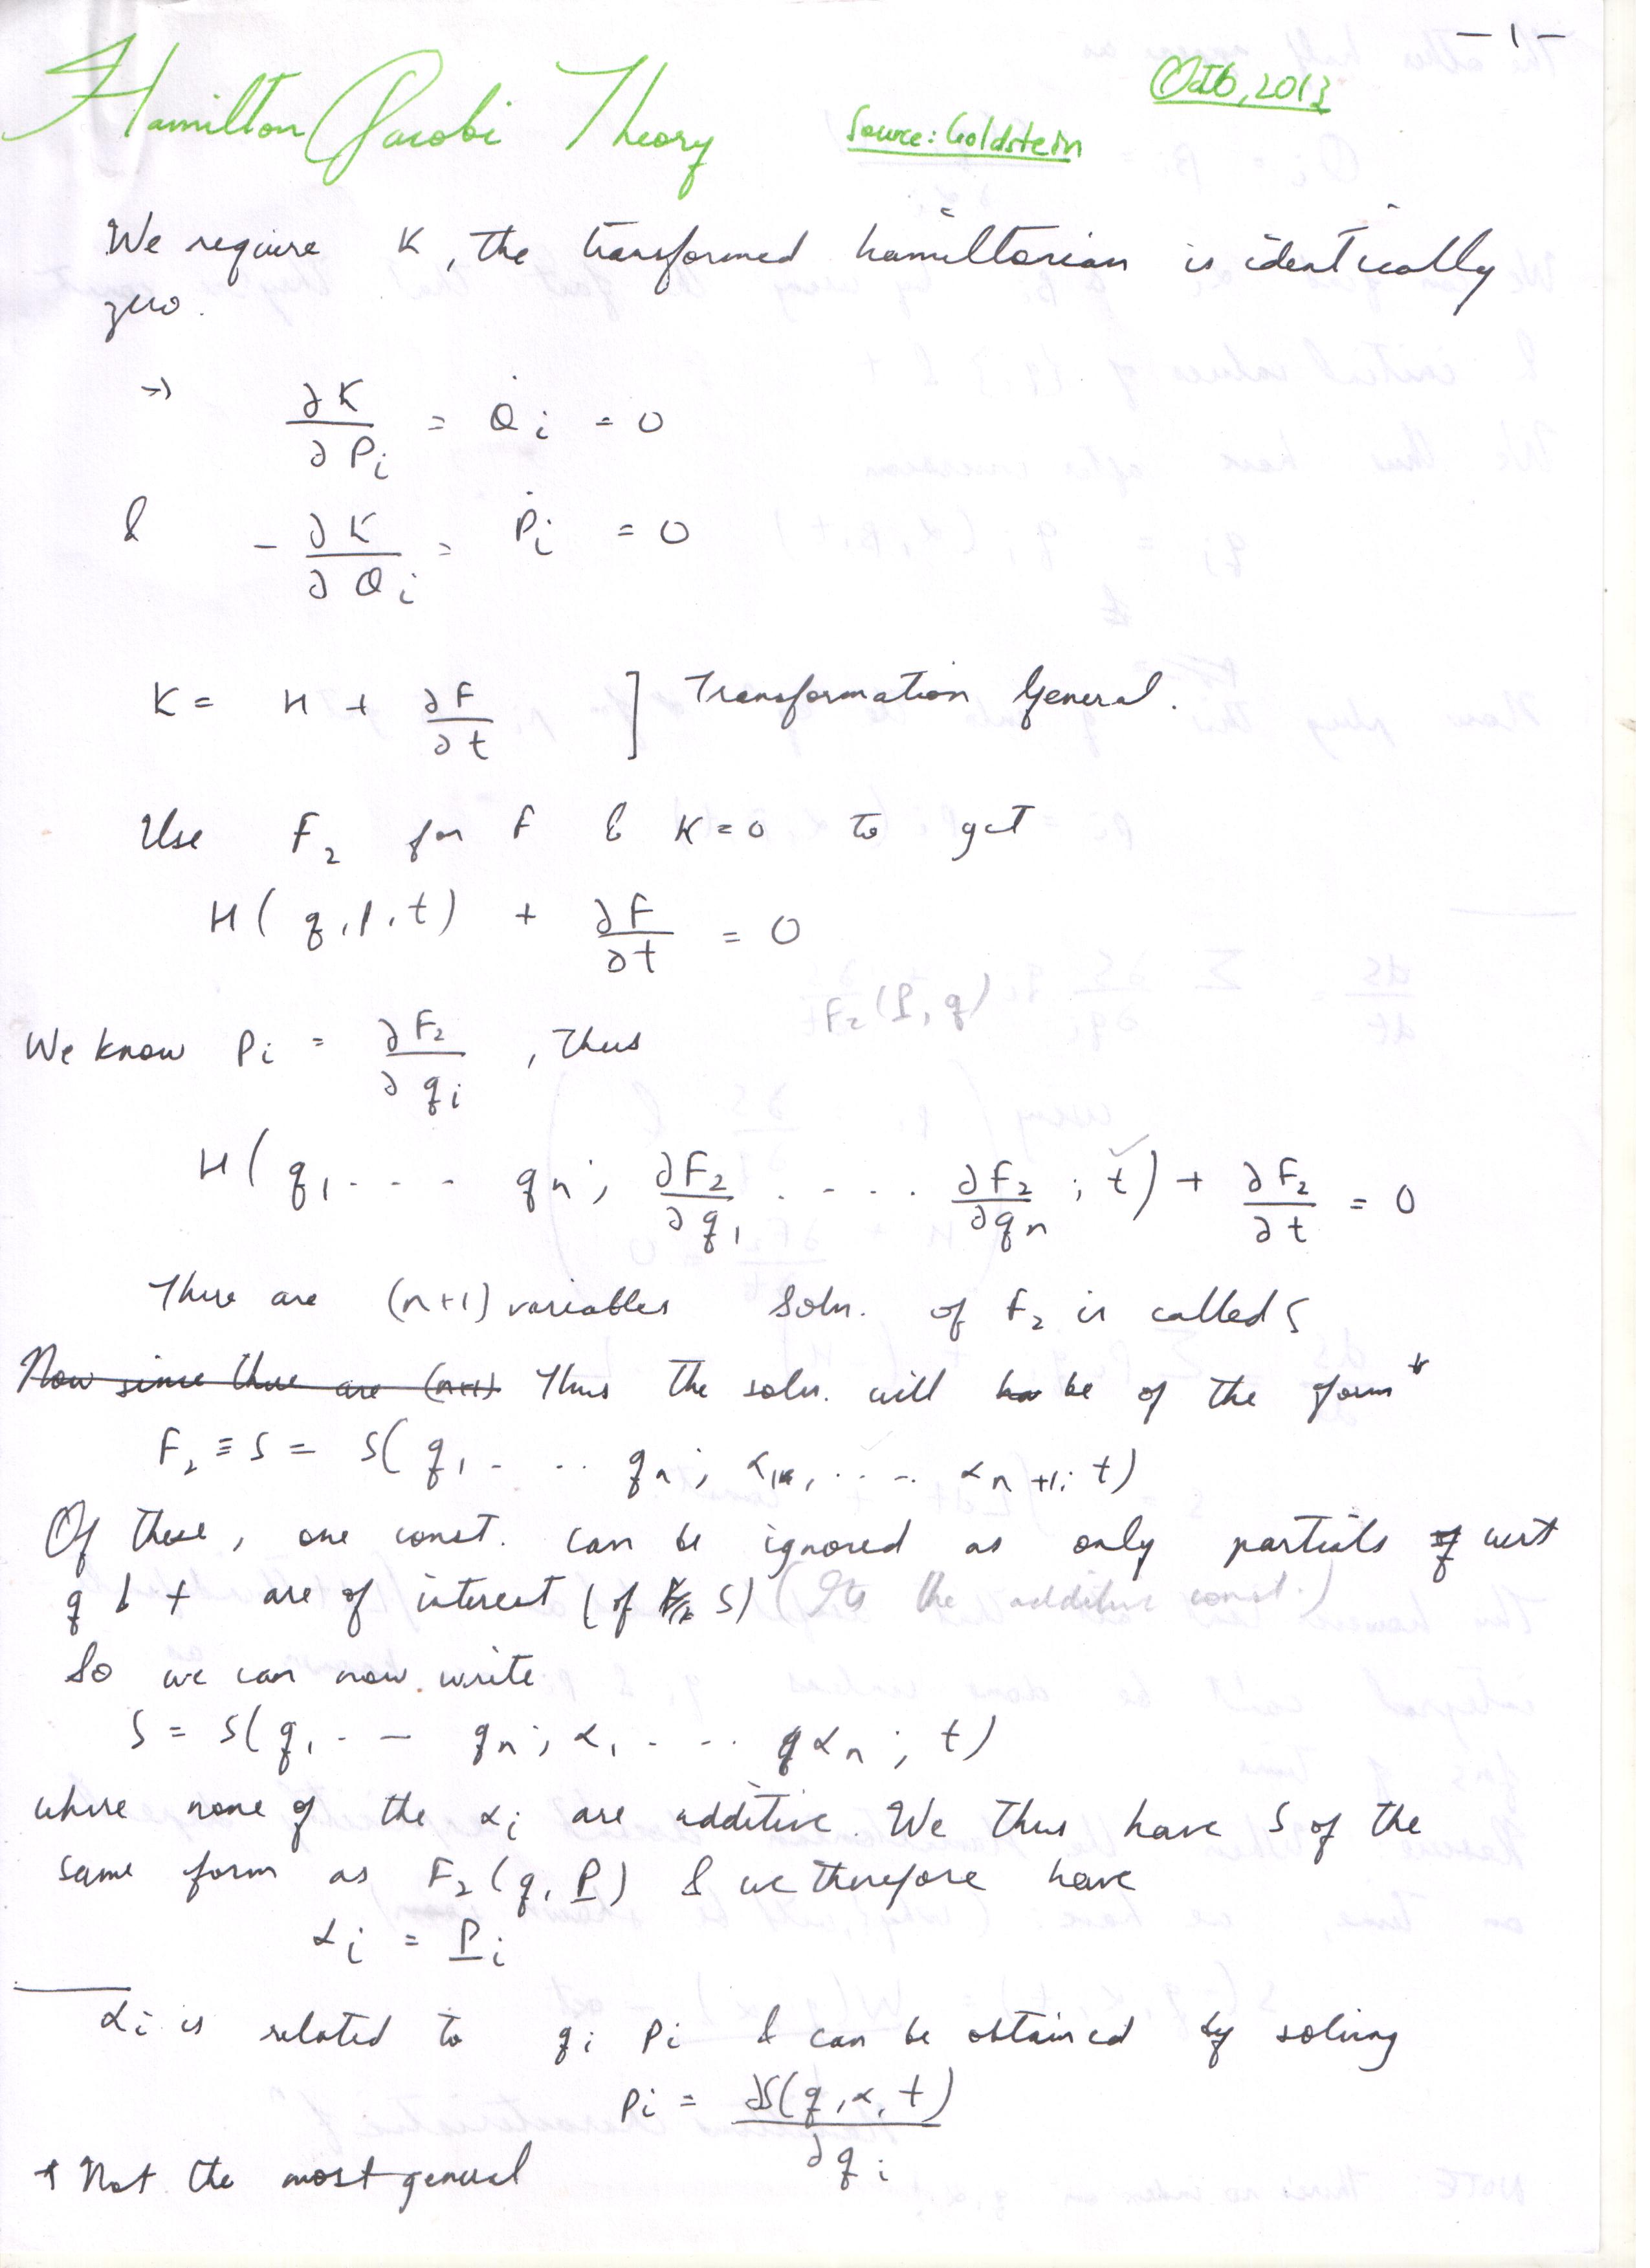 - 1 -
Hamilton Jacobi Theory
Source: Goldstein
Oct 6, 2013
We require K, the transformed hamiltonian is identically
zero.
⇒ ∂K/∂Pi = Q̇i = 0
& - ∂K/∂Qi = Ṗi = 0
K = H + ∂F/∂t ] Transformation General.
Use F₂ for F & K=0 to get
H(q, p, t) + ∂F/∂t = 0
We know pi = ∂F₂/∂qi , Thus
F₂(P, q)
H(q₁ . . . qn; ∂F₂/∂q₁ . . . . ∂F₂/∂qn ; t) + ∂F₂/∂t = 0
There are (n+1) variables Soln. of F₂ is called S
Now since there are (n+1) Thus the soln. will be of the form *
F₂ ≡ S = S(q₁ . . . qn; α₁, . . . . αn+1; t)
Of these, one const. can be ignored as only partials wrt
q & t are of interest (of S) (Its the additive const.)
So we can now write
S = S(q₁ . . . qn; α₁ . . . αn; t)
where none of the αi are additive. We thus have S of the
same form as F₂(q, P) & we therefore have
αi = Pi
αi is related to qi pi & can be obtained by solving
pi = ∂S(q, α, t)/∂qi
* Not the most general